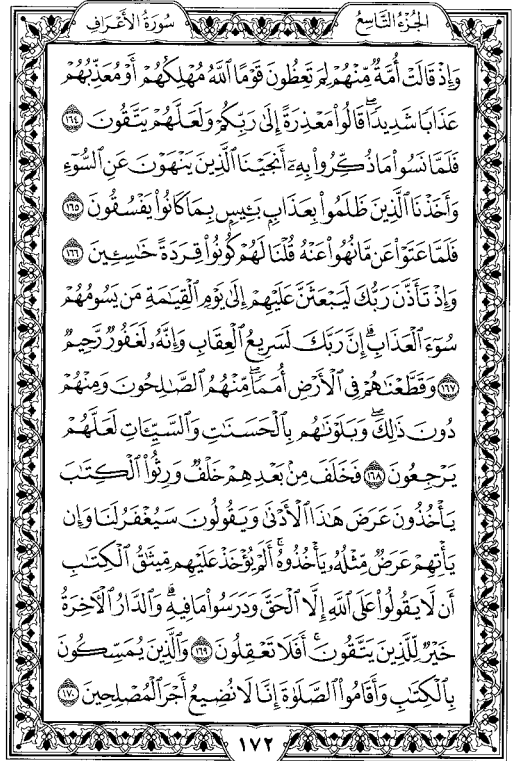 الجزء التاسع
سورة الأعراف
وَإِذْ قَالَتْ أُمَّةٌ مِّنْهُمْ لِمَ تَعِظُونَ قَوْمًا ٱللَّهُ مُهْلِكُهُمْ أَوْ مُعَذِّبُهُمْ
عَذَابًا شَدِيدًا ۖ قَالُوا۟ مَعْذِرَةً إِلَىٰ رَبِّكُمْ وَلَعَلَّهُمْ يَتَّقُونَ ١٦٤
فَلَمَّا نَسُوا۟ مَا ذُكِّرُوا۟ بِهِۦٓ أَنجَيْنَا ٱلَّذِينَ يَنْهَوْنَ عَنِ ٱلسُّوٓءِ
وَأَخَذْنَا ٱلَّذِينَ ظَلَمُوا۟ بِعَذَابٍۭ بَـِٔيسٍۭ بِمَا كَانُوا۟ يَفْسُقُونَ ١٦٥
فَلَمَّا عَتَوْا۟ عَن مَّا نُهُوا۟ عَنْهُ قُلْنَا لَهُمْ كُونُوا۟ قِرَدَةً خَـٰسِـِٔينَ ١٦٦
وَإِذْ تَأَذَّنَ رَبُّكَ لَيَبْعَثَنَّ عَلَيْهِمْ إِلَىٰ يَوْمِ ٱلْقِيَـٰمَةِ مَن يَسُومُهُمْ
سُوٓءَ ٱلْعَذَابِ ۗ إِنَّ رَبَّكَ لَسَرِيعُ ٱلْعِقَابِ ۖ وَإِنَّهُۥ لَغَفُورٌ رَّحِيمٌ
١٦٧ وَقَطَّعْنَـٰهُمْ فِى ٱلْأَرْضِ أُمَمًا ۖ مِّنْهُمُ ٱلصَّـٰلِحُونَ وَمِنْهُمْ
دُونَ ذَٰلِكَ ۖ وَبَلَوْنَـٰهُم بِٱلْحَسَنَـٰتِ وَٱلسَّيِّـَٔاتِ لَعَلَّهُمْ
يَرْجِعُونَ ١٦٨ فَخَلَفَ مِنۢ بَعْدِهِمْ خَلْفٌ وَرِثُوا۟ ٱلْكِتَـٰبَ
يَأْخُذُونَ عَرَضَ هَـٰذَا ٱلْأَدْنَىٰ وَيَقُولُونَ سَيُغْفَرُ لَنَا وَإِن
يَأْتِهِمْ عَرَضٌ مِّثْلُهُۥ يَأْخُذُوهُ ۚ أَلَمْ يُؤْخَذْ عَلَيْهِم مِّيثَـٰقُ ٱلْكِتَـٰبِ
أَن لَّا يَقُولُوا۟ عَلَى ٱللَّهِ إِلَّا ٱلْحَقَّ وَدَرَسُوا۟ مَا فِيهِ ۗ وَٱلدَّارُ ٱلْـَٔاخِرَةُ
خَيْرٌ لِّلَّذِينَ يَتَّقُونَ ۗ أَفَلَا تَعْقِلُونَ ١٦٩ وَٱلَّذِينَ يُمَسِّكُونَ
بِٱلْكِتَـٰبِ وَأَقَامُوا۟ ٱلصَّلَوٰةَ إِنَّا لَا نُضِيعُ أَجْرَ ٱلْمُصْلِحِينَ ١٧٠
١٧٢